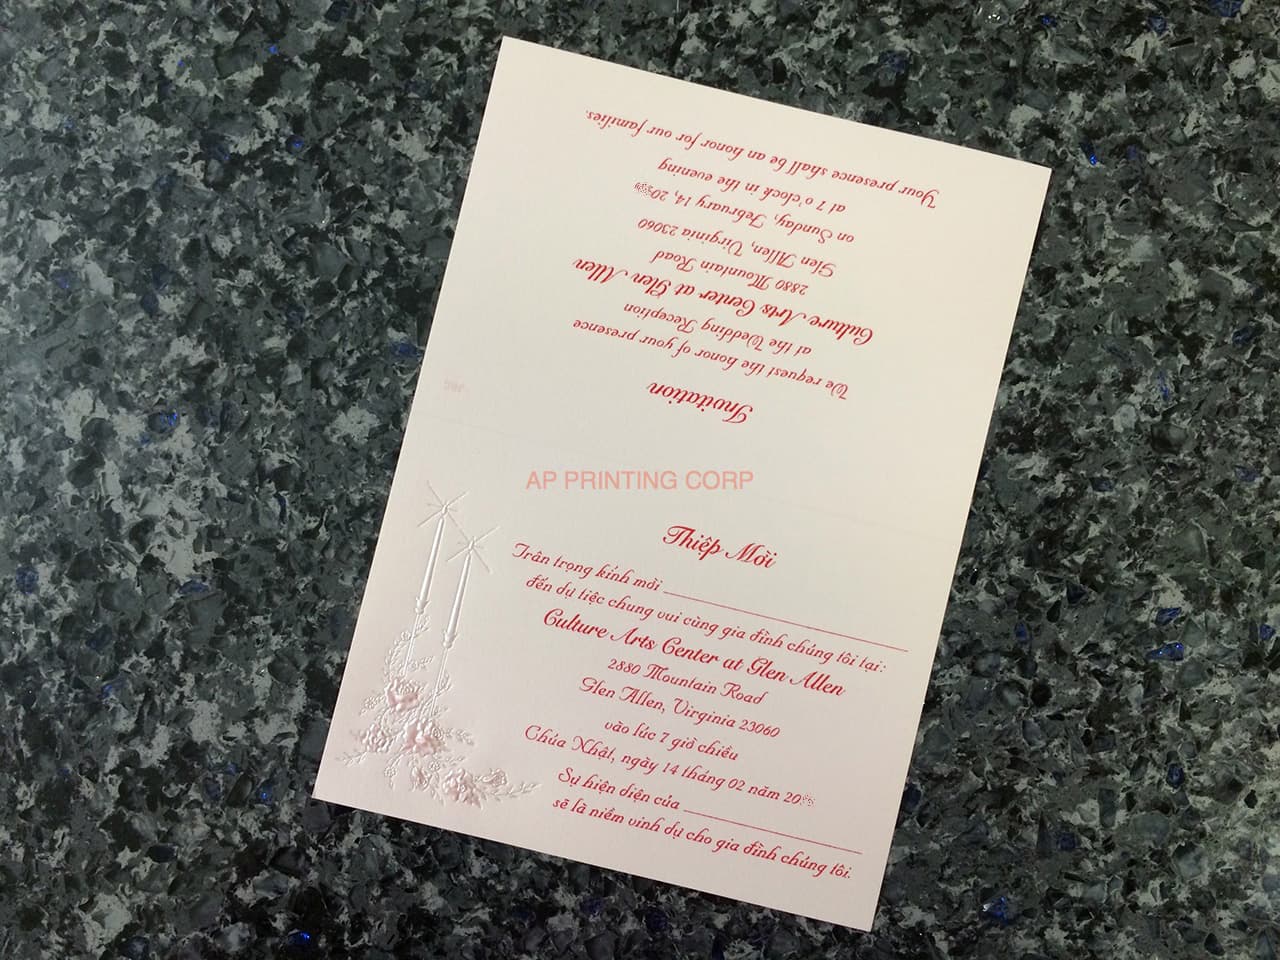 Invitation
We request the honor of your presence
at the Wedding Reception
Culture Arts Center at Glen Allen
2880 Mountain Road
Glen Allen, Virginia 23060
on Sunday, February 14, 20
at 7 o'clock in the evening
Your presence shall be an honor for our families.
AP PRINTING CORP
Thiệp Mời
Trân trọng kính mời
đến dự tiệc chung vui cùng gia đình chúng tôi tại:
Culture Arts Center at Glen Allen
2880 Mountain Road
Glen Allen, Virginia 23060
vào lúc 7 giờ chiều
Chúa Nhật, ngày 14 tháng 02 năm 20
Sự hiện diện của
sẽ là niềm vinh dự cho gia đình chúng tôi.